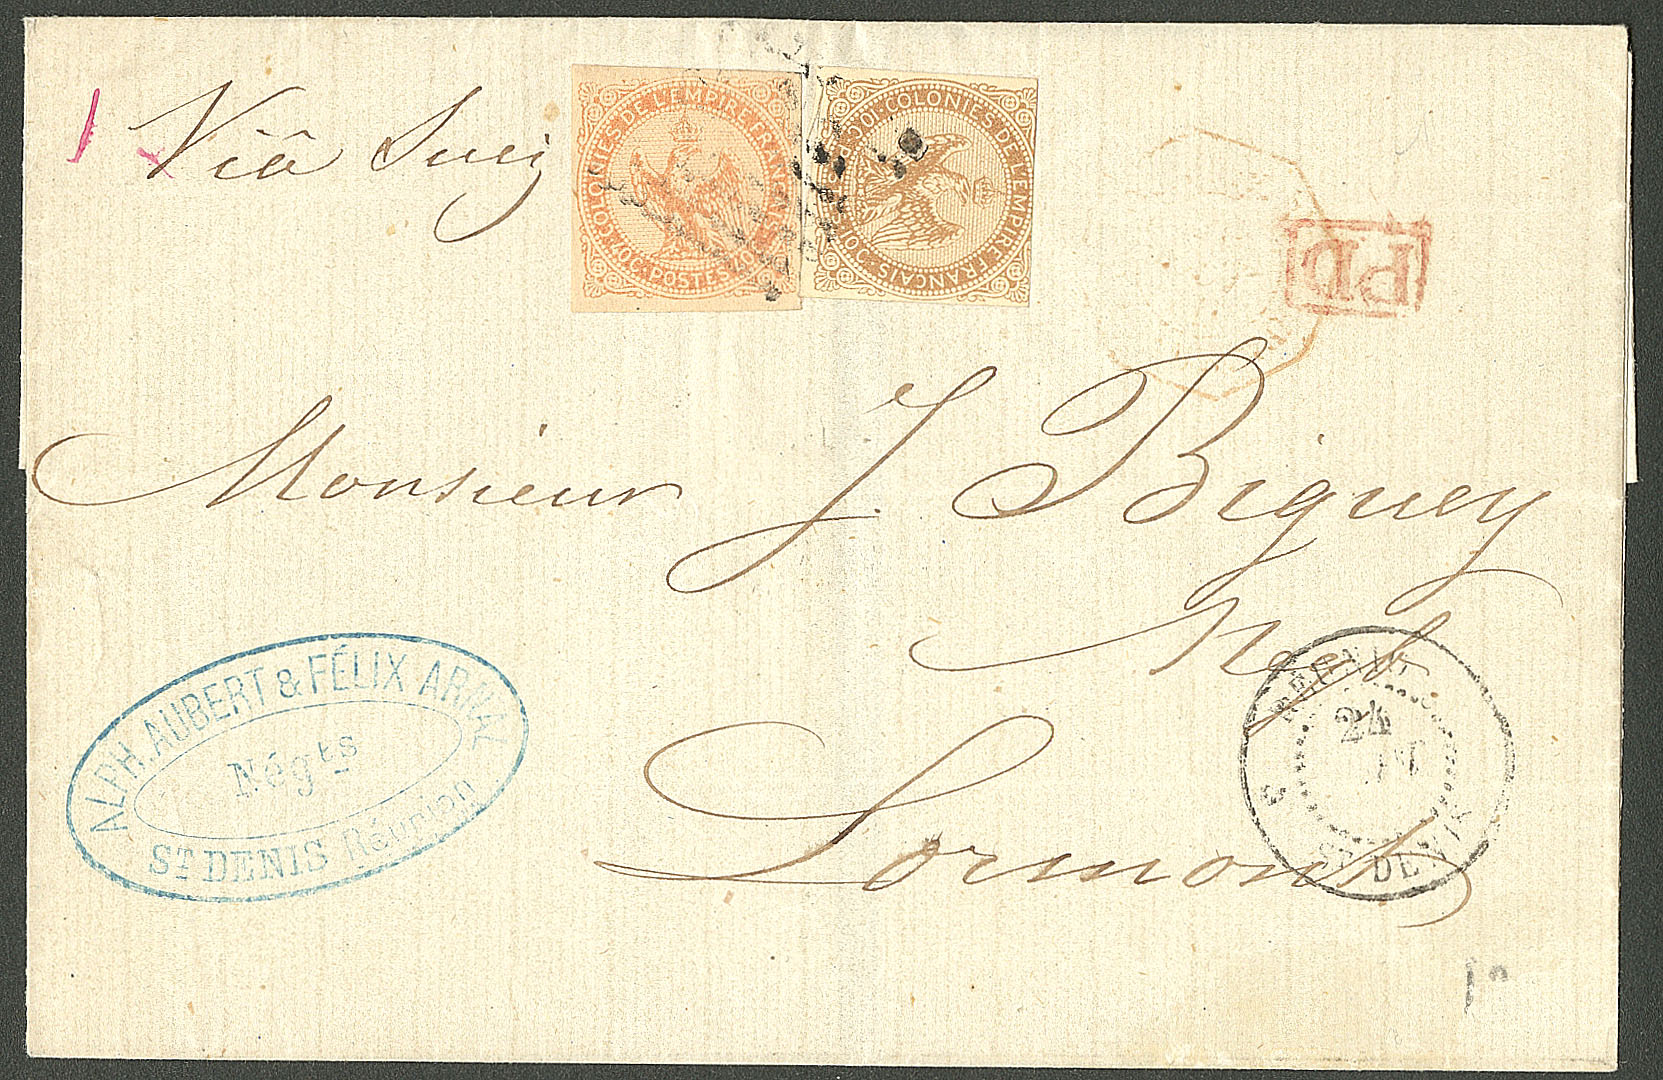 Viâ Suez
COLONIES DE L'EMPIRE FRANÇAIS
40 C. POSTES 40 C.
COLONIES DE L'EMPIRE FRANÇAIS
10 C. POSTES 10 C.
PD
Monsieur J. Biguey
Negt
Lormont
ALPH. AUBERT & FÉLIX ARNAL
Négts
ST DENIS Réunion
RÉUNION
24
ST DENIS